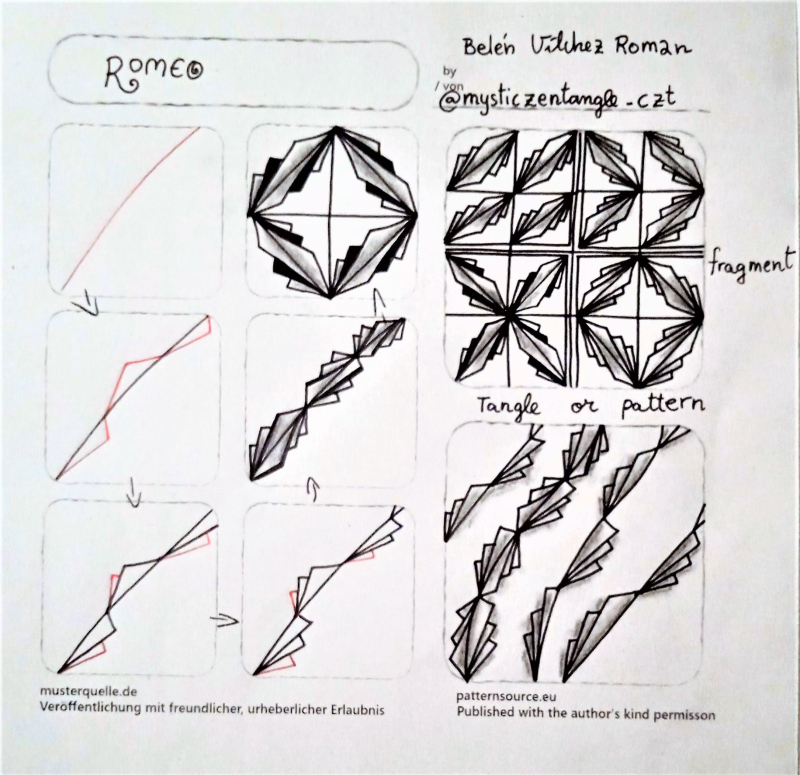 ROMEO
Belén Vilchez Roman
by
/ von
@mysticzentangle_czt
fragment
Tangle or pattern
musterquelle.de
Veröffentlichung mit freundlicher, urheberlicher Erlaubnis
patternsource.eu
Published with the author's kind permisson